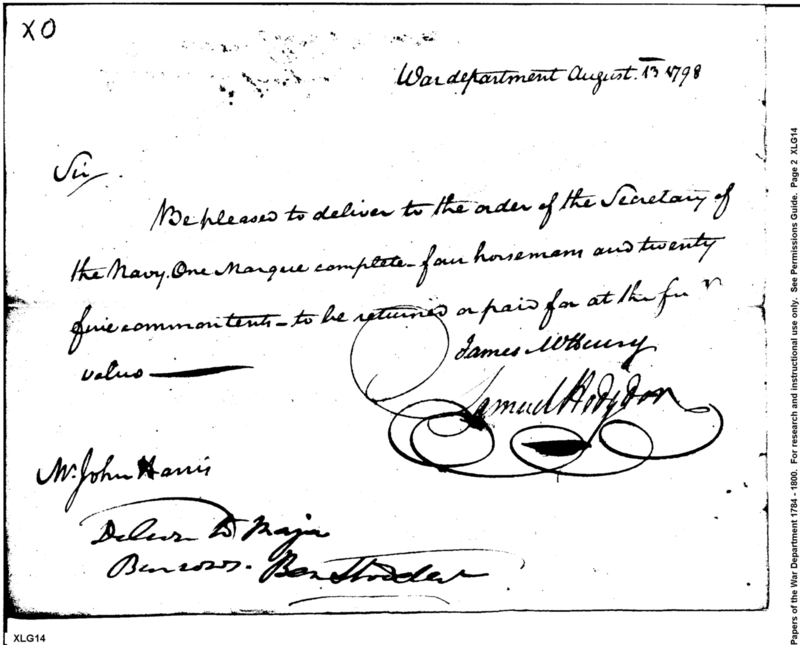 XO
War department August 13 1798
Sir
Be pleased to deliver to the order of the Secretary of
the Navy. One Marque complete - four horsemans and twenty
five common tents - to be returned or paid for at the full
value
James McHenry
Samuel Hodgdon
Mr. John Harris
Deliver to Major
Burrows. Ben Stoddert
XLG14
Papers of the War Department 1784 - 1800. For research and instructional use only. See Permissions Guide. Page 2 XLG14